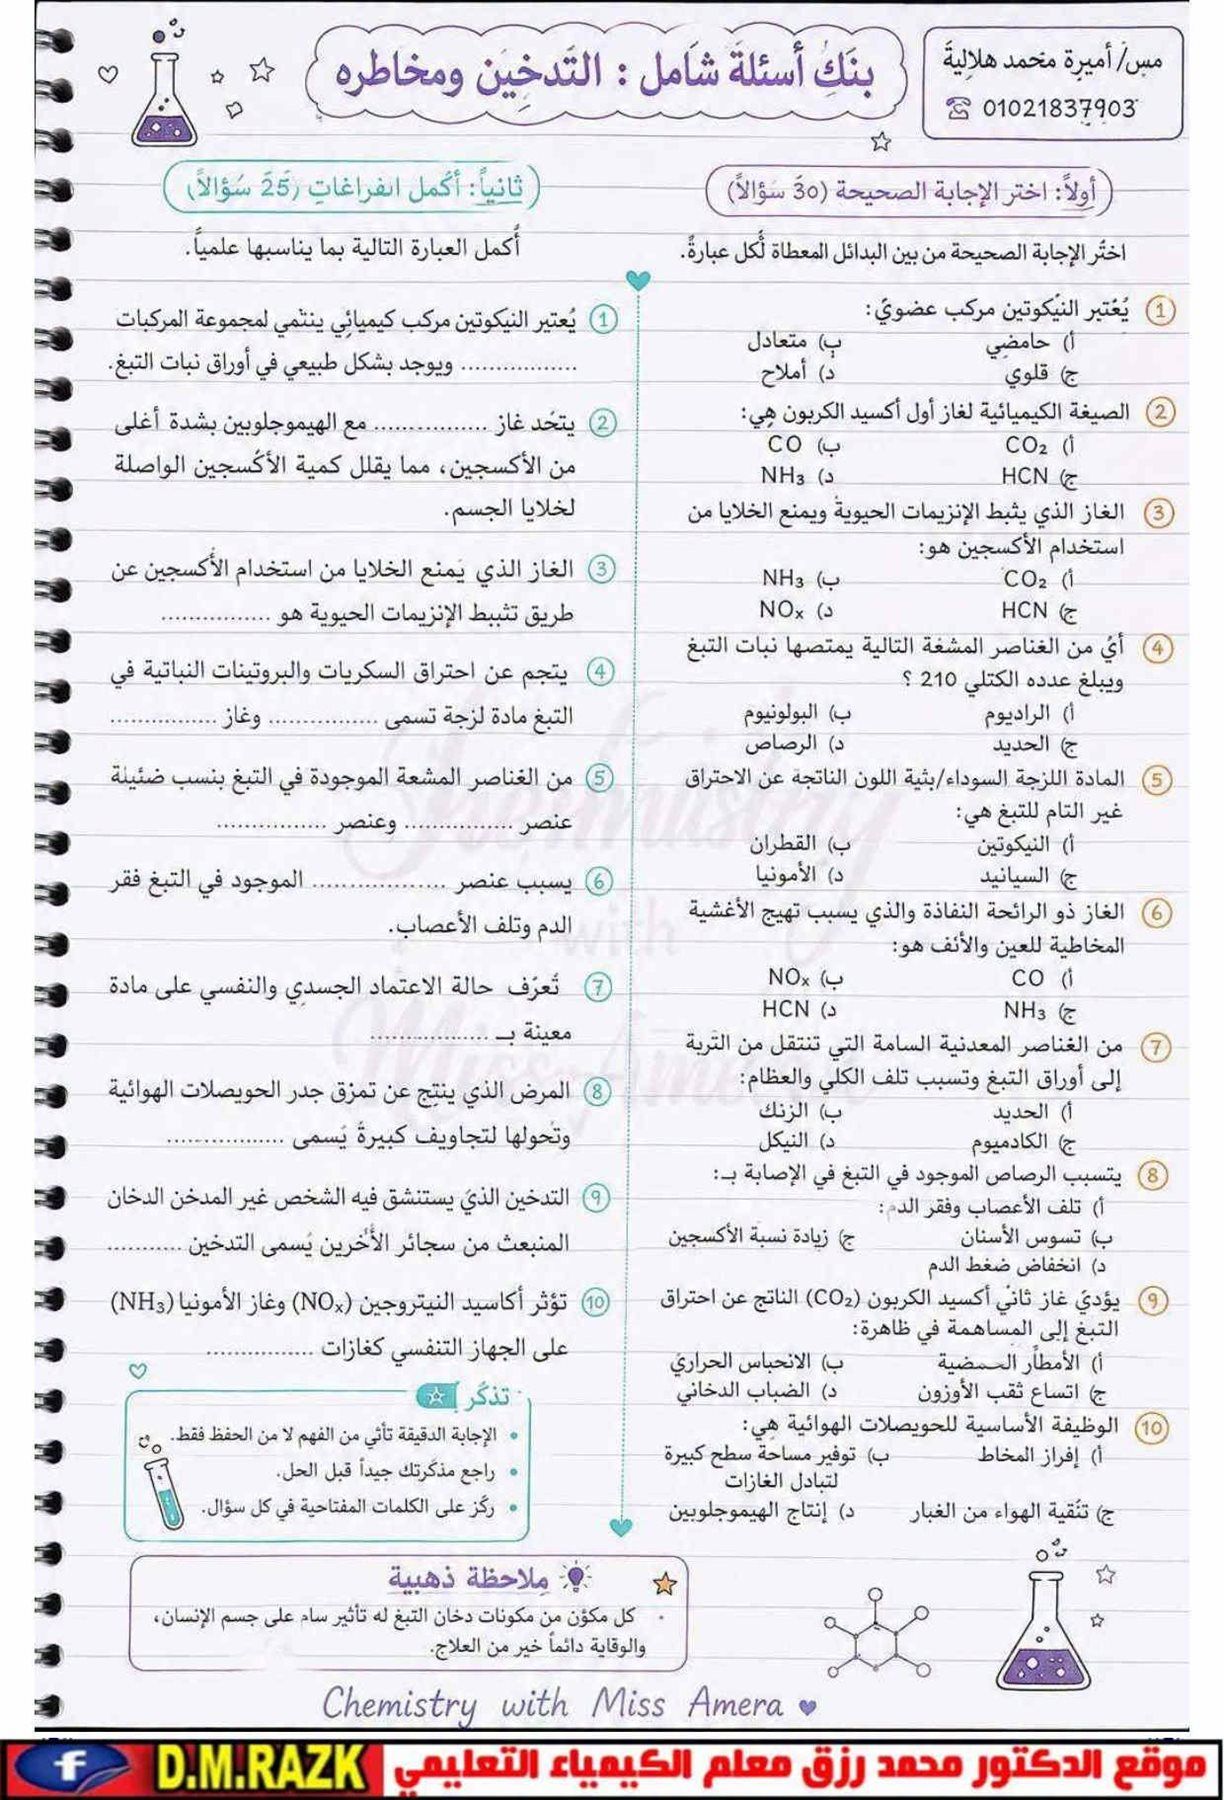 مس/ أميرة محمد هلالية
01021837903
بنك أسئلة شامل : التدخين ومخاطره
أولاً: اختر الإجابة الصحيحة (30 سؤالاً)
اختر الإجابة الصحيحة من بين البدائل المعطاة لكل عبارة.
1 يُعتبر النيكوتين مركب عضوي:
أ) حامضي ب) متعادل
ج) قلوي د) أملاح
2 الصيغة الكيميائية لغاز أول أكسيد الكربون هي:
أ) CO₂ ب) CO
ج) HCN د) NH₃
3 الغاز الذي يثبط الإنزيمات الحيوية ويمنع الخلايا من
استخدام الأكسجين هو:
أ) CO₂ ب) NH₃
ج) HCN د) NOₓ
4 أي من الغناصر المشغة التالية يمتصها نبات التبغ
ويبلغ عدده الكتلي 210 ؟
أ) الراديوم ب) البولونيوم
ج) الحديد د) الرصاص
5 المادة اللزجة السوداء/بثية اللون الناتجة عن الاحتراق
غير التام للتبغ هي:
أ) النيكوتين ب) القطران
ج) السيانيد د) الأمونيا
6 الغاز ذو الرائحة النفاذة والذي يسبب تهيج الأغشية
المخاطية للعين والأنف هو:
أ) CO ب) NOₓ
ج) NH₃ د) HCN
7 من الغناصر المعدنية السامة التي تنتقل من التربة
إلى أوراق التبغ وتسبب تلف الكلي والعظام:
أ) الحديد ب) الزنك
ج) الكادميوم د) النيكل
8 يتسبب الرصاص الموجود في التبغ في الإصابة بـ:
أ) تلف الأعصاب وفقر الدم:
ب) تسوس الأسنان ج) زيادة نسبة الأكسجين
د) انخفاض ضغط الدم
9 يؤدي غاز ثاني أكسيد الكربون (CO₂) الناتج عن احتراق
التبغ إلى المساهمة في ظاهرة:
أ) الأمطار الحمضية ب) الانحباس الحراري
ج) اتساع ثقب الأوزون د) الضباب الدخاني
10 الوظيفة الأساسية للحويصلات الهوائية هي:
أ) إفراز المخاط ب) توفير مساحة سطح كبيرة
لتبادل الغازات
ج) تنقية الهواء من الغبار د) إنتاج الهيموجلوبين
ثانياً: أكمل الفراغات (25 سؤالاً)
أكمل العبارة التالية بما يناسبها علمياً.
1 يُعتبر النيكوتين مركب كيميائي ينتمي لمجموعة المركبات
................. ويوجد بشكل طبيعي في أوراق نبات التبغ.
2 يتحد غاز ................ مع الهيموجلوبين بشدة أعلى
من الأكسجين، مما يقلل كمية الأكسجين الواصلة
لخلايا الجسم.
3 الغاز الذي يمنع الخلايا من استخدام الأكسجين عن
طريق تثبيط الإنزيمات الحيوية هو ................
4 يتجم عن احتراق السكريات والبروتينات النباتية في
التبغ مادة لزجة تسمى ................ وغاز ................
5 من الغناصر المشعة الموجودة في التبغ بنسب ضئيلة
عنصر ................ وعنصر ................
6 يسبب عنصر ................... الموجود في التبغ فقر
الدم وتلف الأعصاب.
7 تُعرّف حالة الاعتماد الجسدي والنفسي على مادة
معينة بـ .................
8 المرض الذي ينتج عن تمزق جدر الحويصلات الهوائية
وتحولها لتجاويف كبيرة يُسمى .................
9 التدخين الذي يستنشق فيه الشخص غير المدخن الدخان
المنبعث من سجائر الآخرين يُسمى التدخين ...........
10 تؤثر أكاسيد النيتروجين (NOₓ) وغاز الأمونيا (NH₃)
على الجهاز التنفسي كغازات ................
تذكر
• الإجابة الدقيقة تأتي من الفهم لا من الحفظ فقط.
• راجع مذكرتك جيداً قبل الحل.
• ركّز على الكلمات المفتاحية في كل سؤال.
ملاحظة ذهبية
• كل مكوّن من مكونات دخان التبغ له تأثير سام على جسم الإنسان،
والوقاية دائماً خير من العلاج.
Chemistry with Miss Amera
D.M.RAZK موقع الدكتور محمد رزق معلم الكيمياء التعليمي